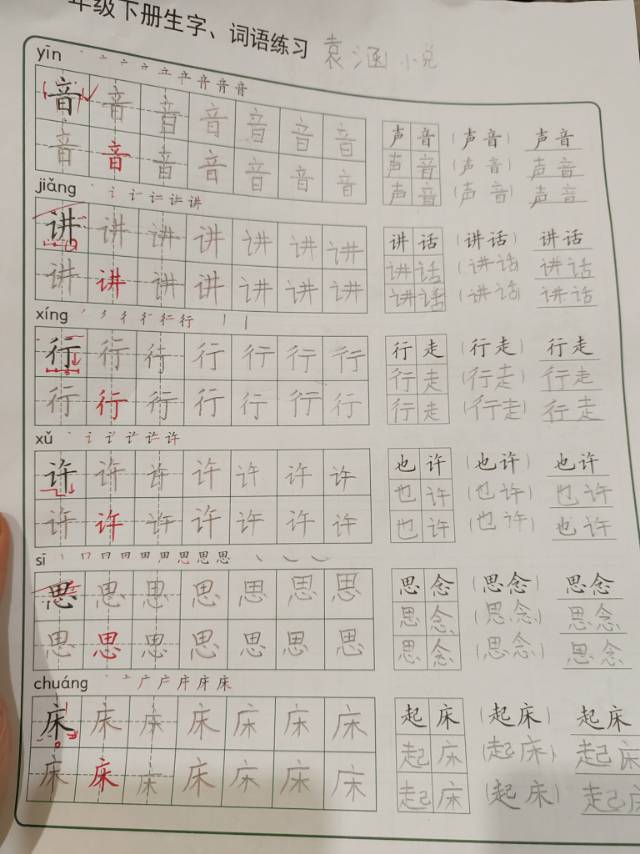 年级下册生字、词语练习 袁涵小兑
yīn
音 音 音 音 音 音 音 声音 （声音） 声音
声音 （声音） 声音
音 音 音 音 音 音 音 声音 （声音） 声音
jiǎng
讲 讲 讲 讲 讲 讲 讲 讲话 （讲话） 讲话
讲话 （讲话） 讲话
讲 讲 讲 讲 讲 讲 讲 讲话 （讲话） 讲话
xíng
行 行 行 行 行 行 行 行走 （行走） 行走
行走 （行走） 行走
行 行 行 行 行 行 行 行走 （行走） 行走
xǔ
许 许 许 许 许 许 许 也许 （也许） 也许
也许 （也许） 也许
许 许 许 许 许 许 许 也许 （也许） 也许
sī
思 思 思 思 思 思 思 思念 （思念） 思念
思念 （思念） 思念
思 思 思 思 思 思 思 思念 （思念） 思念
chuáng
床 床 床 床 床 床 床 起床 （起床） 起床
起床 （起床） 起床
床 床 床 床 床 床 床 起床 （起床） 起床